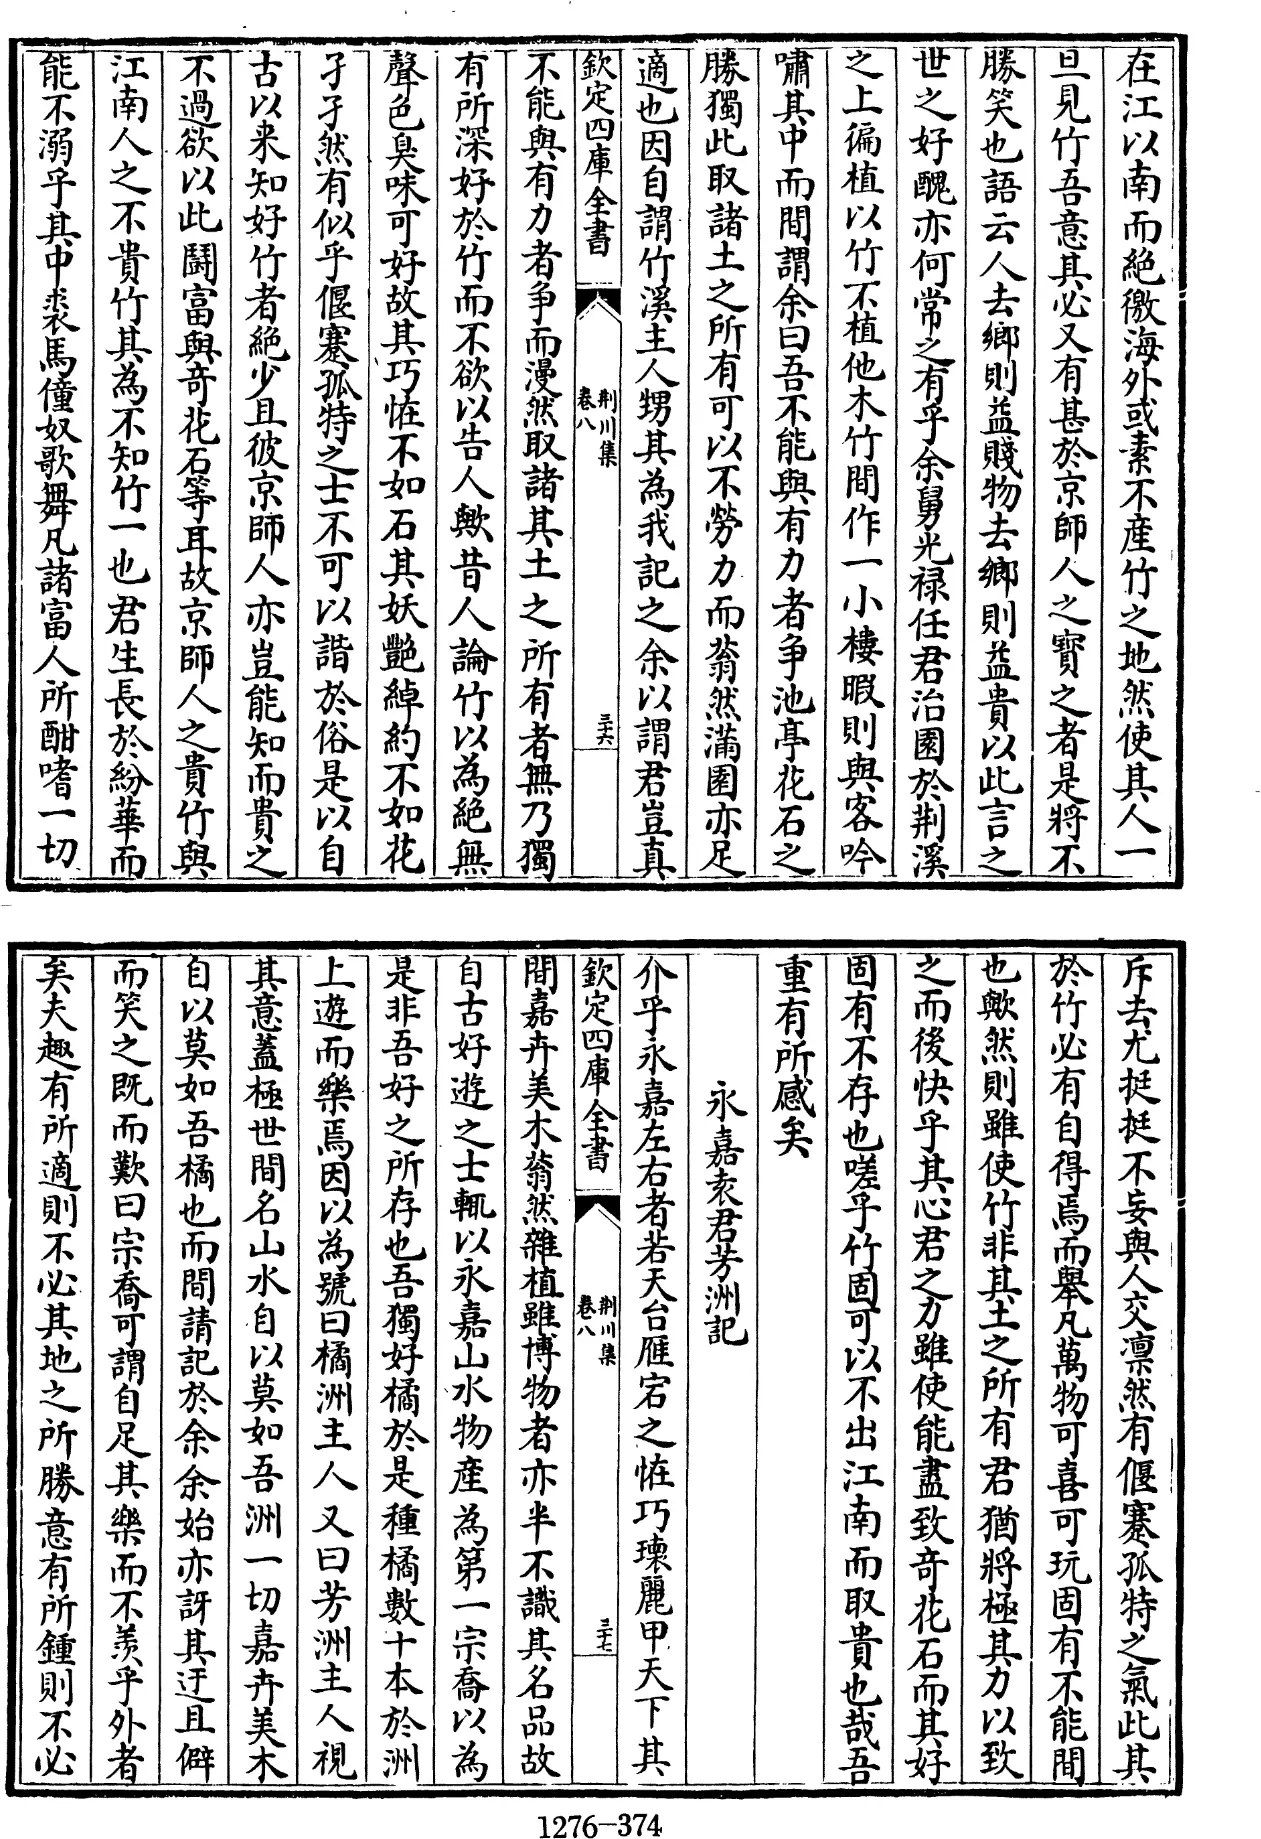 在江以南而絶徼海外或素不産竹之地然使其人一
旦見竹吾意其必又有甚於京師人之寳之者是將不
勝笑也語云人去鄉則益賤物去鄉則益貴以此言之
世之好醜亦何常之有乎余舅光禄任君治園於荆溪
之上徧植以竹不植他木竹間作一小樓暇則與客吟
嘯其中而間謂余曰吾不能與有力者争池亭花石之
勝獨此取諸土之所有可以不勞力而蓊然滿園亦足
適也因自謂竹溪主人甥其為我記之余以謂君豈真
欽定四庫全書
荆川集
卷八
三六
不能與有力者争而漫然取諸其土之所有者無乃獨
有所深好於竹而不欲以告人歟昔人論竹以為絶無
聲色臭味可好故其巧怪不如石其妖艶綽約不如花
孑孑然有似乎偃蹇孤特之士不可以諧於俗是以自
古以来知好竹者絶少且彼京師人亦豈能知而貴之
不過欲以此鬬富與奇花石等耳故京師人之貴竹與
江南人之不貴竹其為不知竹一也君生長於紛華而
能不溺乎其中裘馬僮奴歌舞凡諸富人所酣嗜一切
斥去尤挺挺不妄與人交凛然有偃蹇孤特之氣此其
於竹必有自得焉而舉凡萬物可喜可玩固有不能間
也歟然則雖使竹非其土之所有君猶將極其力以致
之而後快乎其心君之力雖使能盡致奇花石而其好
固有不存也嗟乎竹固可以不出江南而取貴也哉吾
重有所感矣
永嘉袁君芳洲記
介乎永嘉左右者若天台雁宕之怪巧瓌麗甲天下其
欽定四庫全書
荆川集
卷八
三七
間嘉卉美木蓊然雜植雖博物者亦半不識其名品故
自古好遊之士輒以永嘉山水物產為第一宗喬以為
是非吾好之所存也吾獨好橘於是種橘數十本於洲
上遊而樂焉因以為號曰橘洲主人又曰芳洲主人視
其意蓋極世間名山水自以莫如吾洲一切嘉卉美木
自以莫如吾橘也而間請記於余余始亦訝其迂且僻
而笑之既而歎曰宗喬可謂自足其樂而不羨乎外者
矣夫趣有所適則不必其地之所勝意有所鍾則不必
1276-374